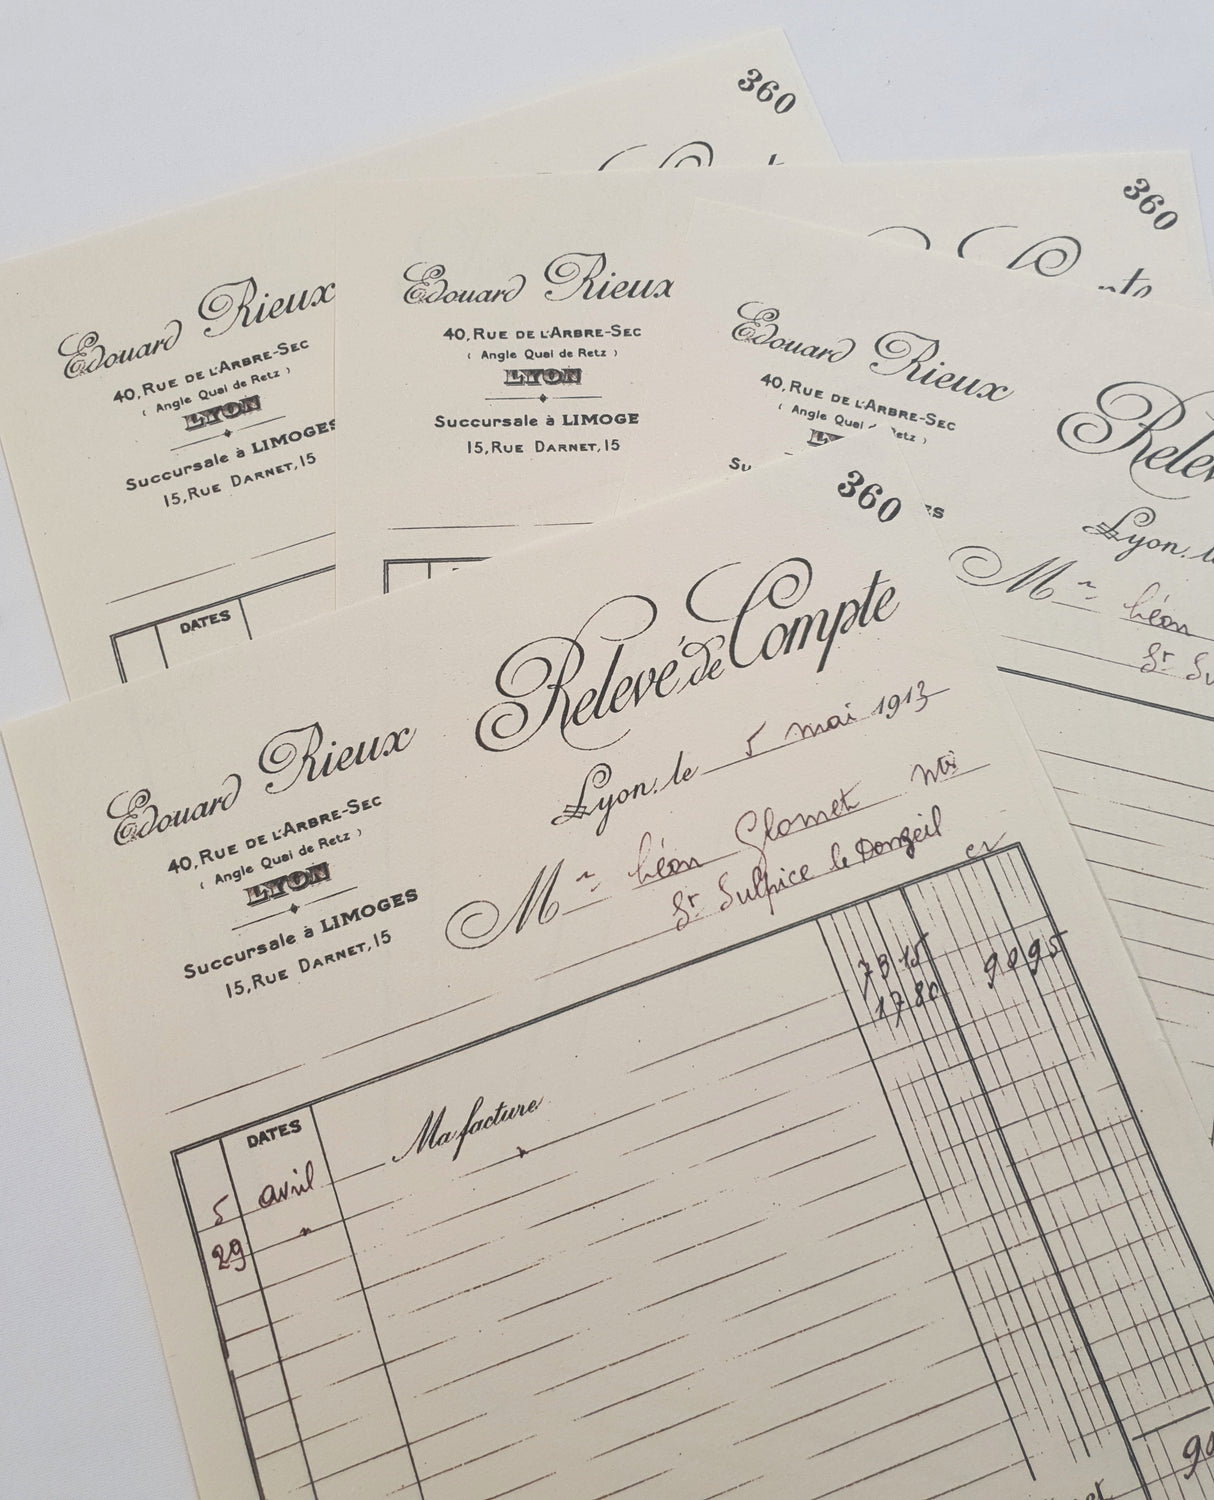 360
Edouard Rieux
40, RUE DE L'ARBRE-SEC
( Angle Quai de Retz )
LYON
Succursale à LIMOGES
15, RUE DARNET, 15
DATES
360
Edouard Rieux
40, RUE DE L'ARBRE-SEC
( Angle Quai de Retz )
LYON
Succursale à LIMOGE
15, RUE DARNET, 15
Edouard Rieux
40, RUE DE L'ARBRE-SEC
( Angle Quai etz )
LY
Su ES
Relev
Lyon, l
Mr Léon
St Su
360
Relevé de Compte
Edouard Rieux
40, RUE DE L'ARBRE-SEC
( Angle Quai de Retz )
LYON
Succursale à LIMOGES
15, RUE DARNET, 15
Lyon, le 5 mai 1913
Mr Léon Glomet
St Sulpice le Donzeil
DATES
5 avril Ma facture 73 15
29 " " 17 80 90 95
90